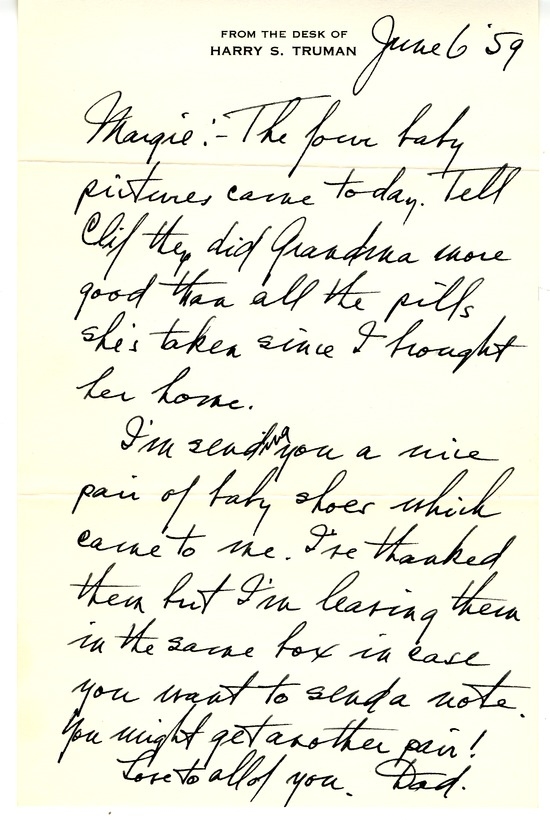 FROM THE DESK OF
HARRY S. TRUMAN
June 6 '59
Margie:- The four baby
pictures came today. Tell
Clif they did Grandma more
good than all the pills
she's taken since I brought
her home.
I'm sending you a nice
pair of baby shoes which
came to me. I've thanked
them but I'm leaving them
in the same box in case
you want to send a note.
You might get another pair!
Love to all of you. Dad.